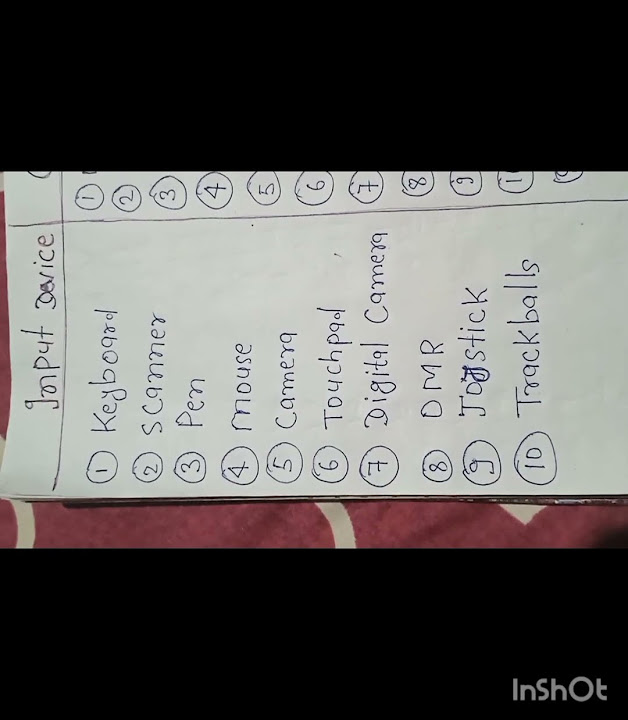 Input Device
① Keyboard
② Scanner
③ Pen
④ mouse
⑤ Camera
⑥ Touchpad
⑦ Digital Camera
⑧ OMR
⑨ Joystick
⑩ Trackballs
①
②
③
④
⑤
⑥
⑦
⑧
⑨
InShOt